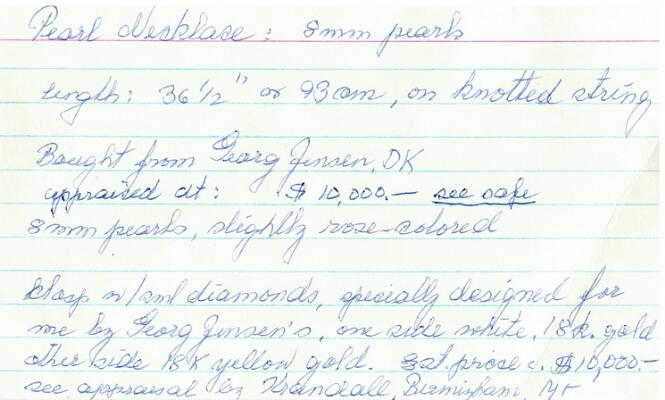 Pearl Necklace: 8mm pearls
length: 36 1/2" or 93 cm, on knotted string
Bought from Georg Jensen, DK
appraised at: $ 10,000.— see safe
8mm pearls, slightly rose-colored
Clasp w/ sml diamonds, specially designed for
me by Georg Jensen's, one side white, 18k. gold
other side 18K yellow gold. $10,000.—
see appraisal by Birmingham,